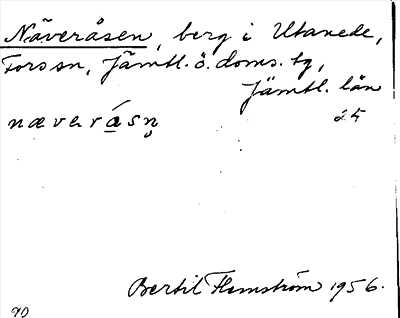 Näveråsen, berg i Utanede,
Fors sn, Jämtl. ö. doms. tg,
Jämtl. län
næverásn̥
25
Bertil Flemström 1956.
90